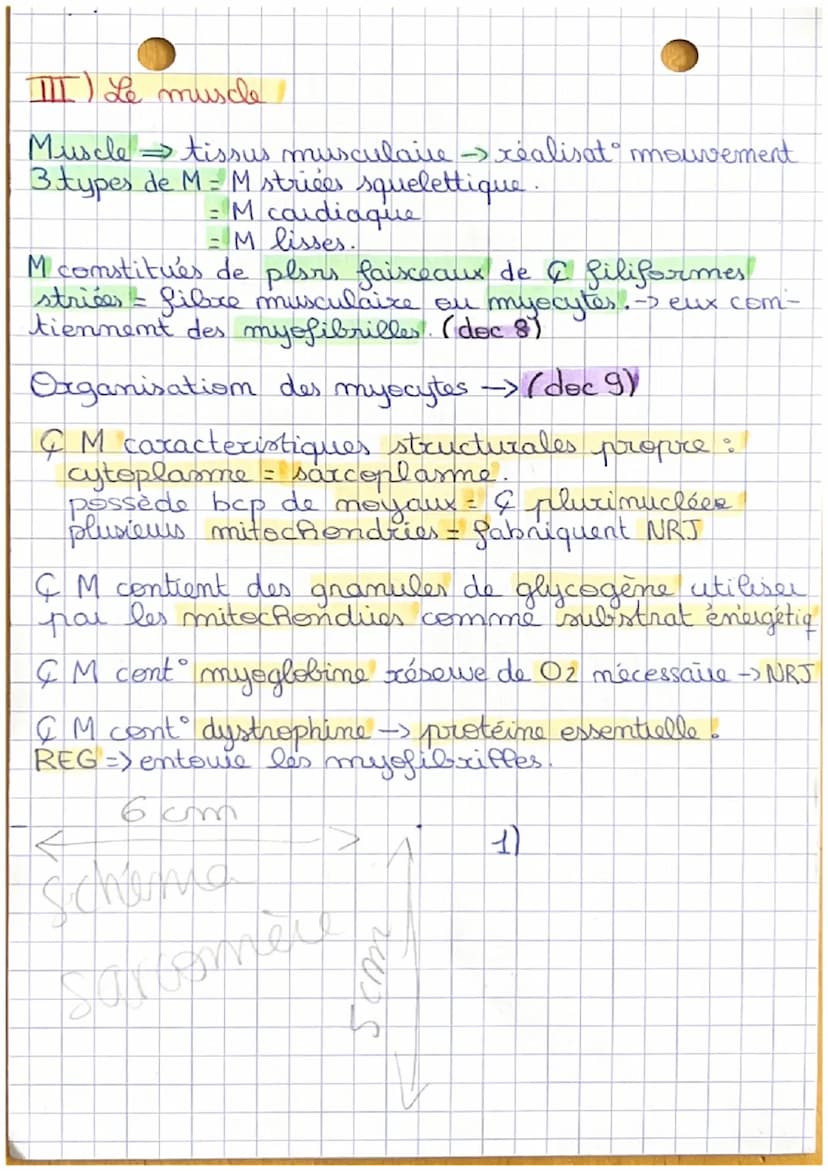 III) Le muscle
Muscle => tissus musculaire -> réalisat° mouvement
3 types de M = M striées squelettique.
= M cardiaque
= M lisses.
M constitués de plsrs faisceaux de ₵ filiformes
striées = fibre musculaire ou myocytes. -> eux con-
tiennent des myofibrilles. (doc 8)
Organisation des myocytes -> (doc 9)
₵ M caracteristiques structurales propre :
cytoplasme = sarcoplasme.
possède bcp de noyaux = ₵ plurinucléée
plusieurs mitochondries = fabriquent NRJ
₵ M contient des granules de glycogène utiliser
par les mitochondries comme substrat énergétiq
₵ M cont° myoglobine réserve de O2 nécessaire -> NRJ
₵ M cont° dystrophine -> protéine essentielle !
REG => entoure les myofibrilles.
6 cm
1)
Schéma
sarcomère
5 cm